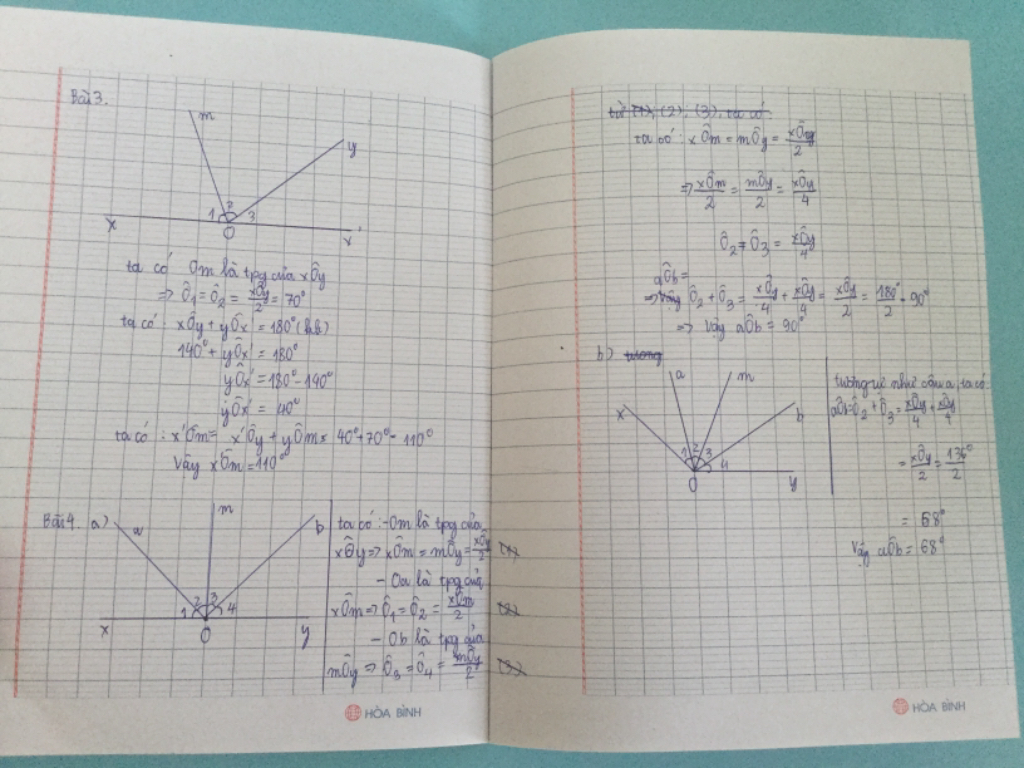 Bài 3.
m
y
2
1 3
x O x'
ta có Om là tpg của xÔy
=> Ô1 = Ô2 = xÔy/2 = 70°
ta có: xÔy + yÔx' = 180° (kb)
140° + yÔx' = 180°
yÔx' = 180° - 140°
yÔx' = 40°
ta có: x'Ôm = x'Ôy + yÔm = 40° + 70° = 110°
Vậy xÔm = 110°
Bài 4. a)
m
a b
2 3
1 4
x O y
ta có: - Om là tpg của
xÔy => xÔm = mÔy = xÔy/2 (1)
- Oa là tpg của
xÔm => Ô1 = Ô2 = xÔm/2 (2)
- Ob là tpg của
mÔy => Ô3 = Ô4 = mÔy/2 (3)
HÒA BÌNH
từ (1), (2), (3), ta có:
ta có: xÔm = mÔy = xÔy/2
=> xÔm/2 = mÔy/2 = xÔy/4
Ô2 = Ô3 = xÔy/4
aÔb =
=> Vậy Ô2 + Ô3 = xÔy/4 + xÔy/4 = xÔy/2 = 180°/2 = 90°
=> Vậy aÔb = 90°
b) tương
a m
x b
1 2 3 4
O y
tương tự như câu a, ta có:
aÔb = Ô2 + Ô3 = xÔy/4 + xÔy/4
= xÔy/2 = 136°/2
= 68°
Vậy aÔb = 68°
HÒA BÌNH